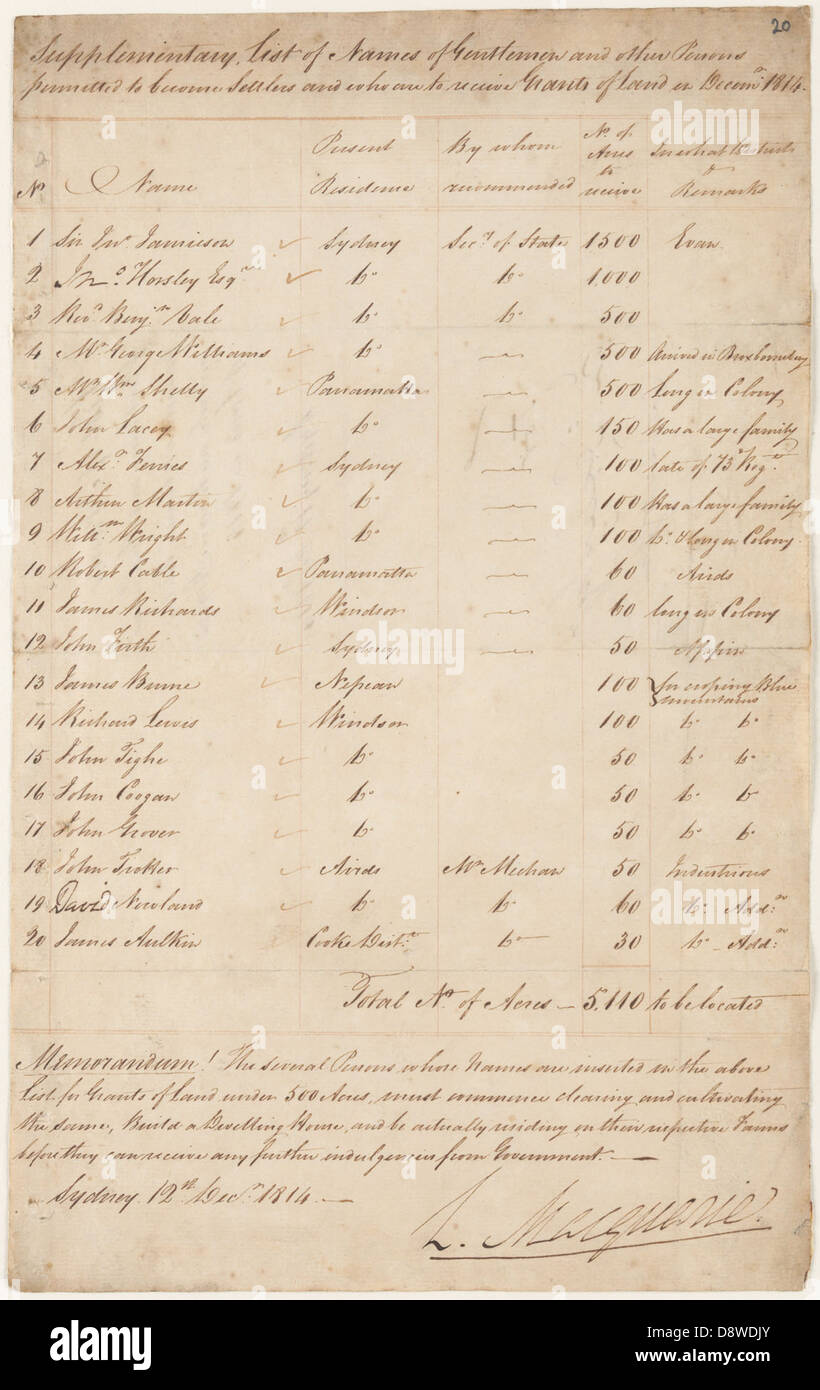 20
Supplementary List of Names of Gentlemen and other Persons
permitted to become Settlers and who are to receive Grants of Land in Decemr. 1814.
No. Name Present Residence By whom recommended No. of Acres to receive In what District & Remarks
1 Sir Jno. Jamieson ✓ Sydney Secy. of State 1500 Evan
2 Jno. Horsley Esqr. ✓ Do. Do. 1,000
3 Revd. Benjn. Vale ✓ Do. Do. 500
4 Mr. George Williams ✓ Do. — 500 Arrived in Broxbornebury
5 Mr. Wm. Shelly ✓ Parramatta — 500 Long in Colony
6 John Lacey ✓ Do. — 150 Has a large family
7 Alexr. Ferries ✓ Sydney — 100 late of 73d. Regt.
8 Arthur Martin ✓ Do. — 100 Has a large family
9 Willm. Wright ✓ Do. — 100 Do. & long in Colony
10 Robert Cable ✓ Parramatta — 60 Airds
11 James Richards ✓ Windsor — 60 long in Colony
12 John Firth ✓ Sydney — 50 Appin
13 James Burne ✓ Nepean 100 for crossing Blue mountains
14 Richard Lewis ✓ Windsor 100 Do. Do.
15 John Tighe ✓ Do. 50 Do. Do.
16 John Coogan ✓ Do. 50 Do. Do.
17 John Grover ✓ Do. 50 Do. Do.
18 John Trotter ✓ Airds Mr. Meehan 50 Industrious
19 David Newland ✓ Do. Do. 60 Do. Addn.
20 James Aulkin Cooke Distt. Do. 30 Do. Addn.
Total No. of Acres — 5,110 to be located
Memorandum! The several Persons whose Names are inserted in the above
List for Grants of Land under 500 Acres, must commence clearing and cultivating
the same, Build a Dwelling House, and be actually residing on their respective Farms
before they can receive any further indulgences from Government. —
Sydney 12th. Decr. 1814. —
L. Macquarie.
alamy
Image ID: D8WDJY
www.alamy.com